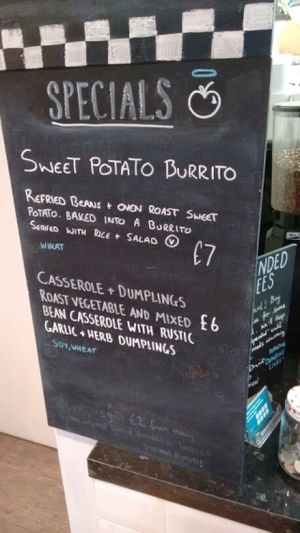 SPECIALS
SWEET POTATO BURRITO
REFRIED BEANS + OVEN ROAST SWEET
POTATO. BAKED INTO A BURRITO
SERVED WITH RICE + SALAD V
WHEAT £7
CASSEROLE + DUMPLINGS
ROAST VEGETABLE AND MIXED £6
BEAN CASSEROLE WITH RUSTIC
GARLIC + HERB DUMPLINGS
SOY, WHEAT
£2
NDED
EES